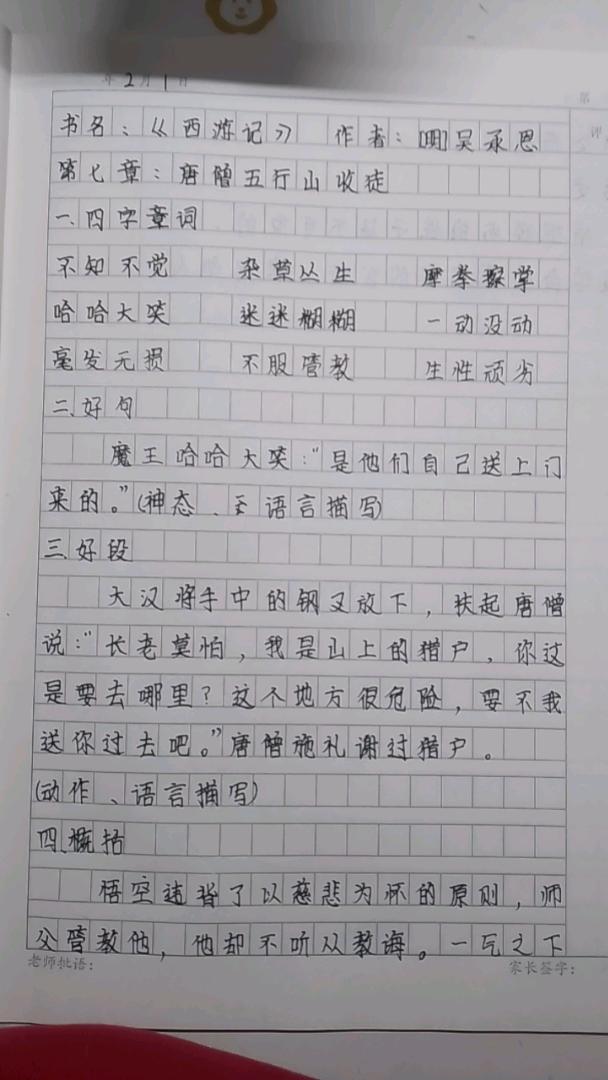 年2月1日
第
书名：《西游记》 作者：[明]吴承恩
第七章：唐僧五行山收徒
一、四字章词
不知不觉 杂草丛生 摩拳擦掌
哈哈大笑 迷迷糊糊 一动没动
毫发无损 不服管教 生性顽劣
二、好句
魔王哈哈大笑：“是他们自己送上门
来的。”(神态、语言描写)
三、好段
大汉将手中的钢叉放下，扶起唐僧
说：“长老莫怕，我是山上的猎户，你这
是要去哪里？这个地方很危险，要不我
送你过去吧。”唐僧施礼谢过猎户。
(动作、语言描写)
四、概括
悟空违背了以慈悲为怀的原则，师
父管教他，他却不听从教诲。一气之下
老师批语： 家长签字：